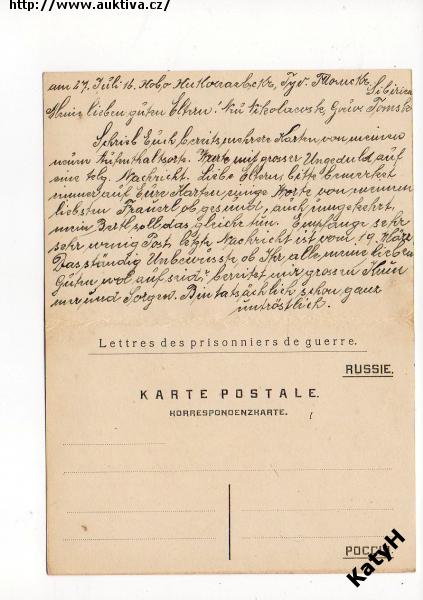 http://www.auktiva.cz/
am 27. Juli 16. Ново Николаевск, Губ. Томск. Sibirien
Meine lieben guten Eltern! Nii Nikolaewsk, Gouv Tomsk
Schrieb Euch bereits mehrere Karten von meinem
neuen Aufenthaltsorte. Warte mit grosser Ungeduld auf
eine telg. Nachricht. Liebe Eltern bitte bemerket
immer auf Eure Karten einige Worte von meinem
liebsten Frauerl ob gesund, auch umgekehrt,
mein soll das gleiche tun. Empfange sehr
sehr wenig Post letzte Nachricht ist vom 19. März.
Das ständig Unbewusste ob Ihr alle meine lieben
Guten wol auf seid, bereitet mir grossen Kum
mer und Sorgen. Bin tatsächlich schon ganz
untröstlich.
Lettres des prisonniers de guerre.
RUSSIE.
KARTE POSTALE.
KORRESPONDENZKARTE.
РОССІЯ
KatyH